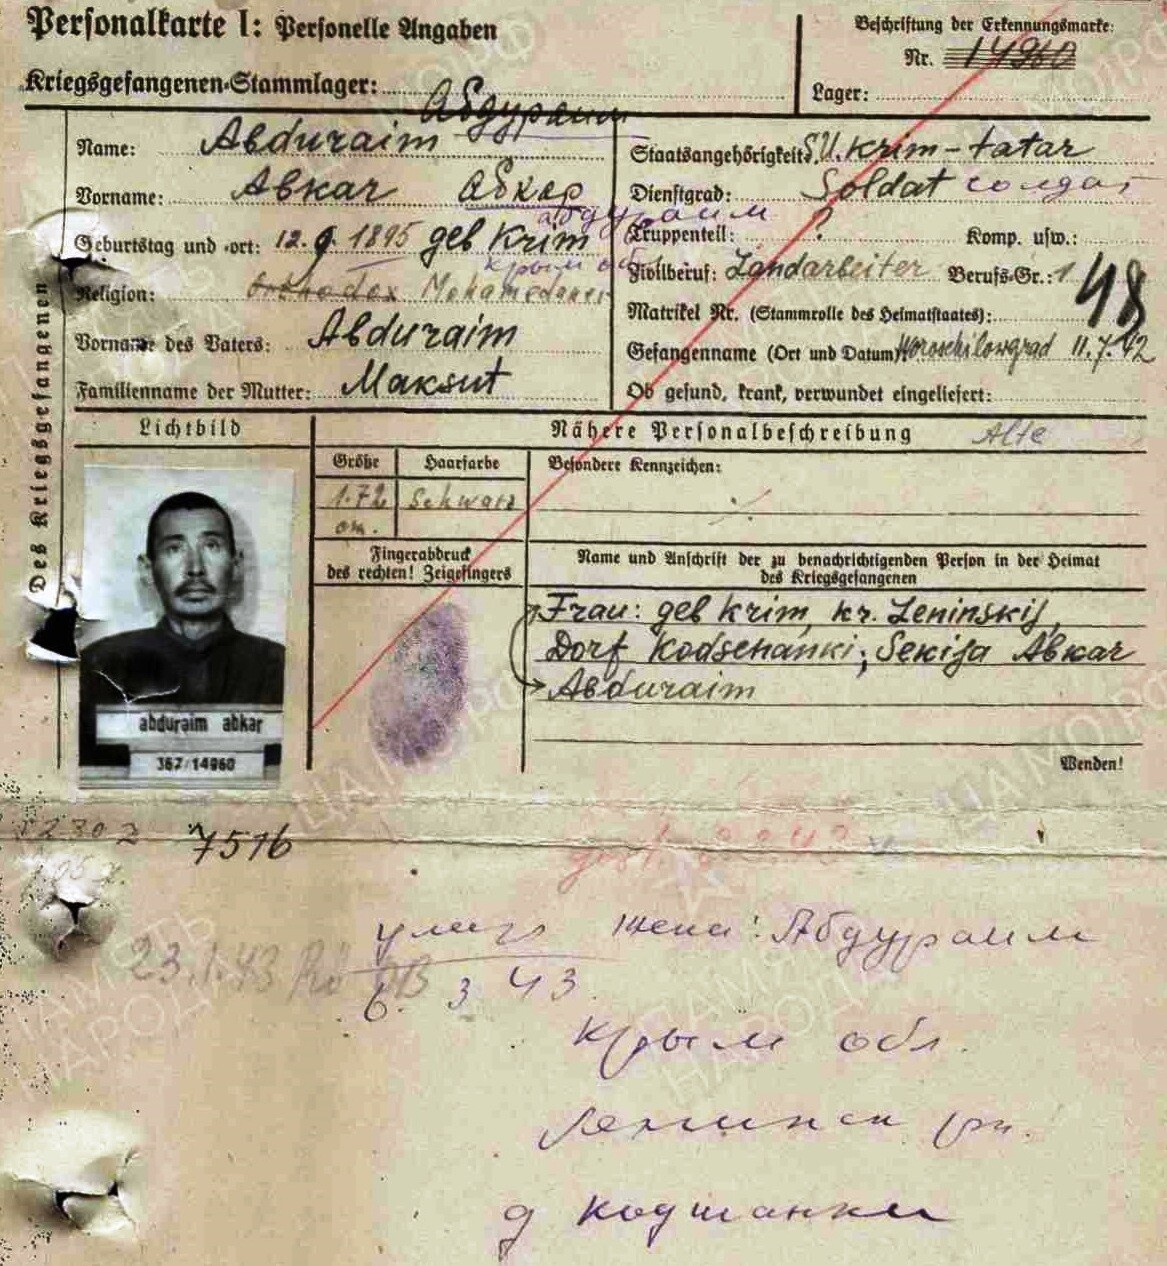 Personalkarte I: Personelle Angaben
Beschriftung der Erkennungsmarke:
Nr. 14960
Kriegsgefangenen-Stammlager:
Lager:
Абдураим
Des Kriegsgefangenen
Name: Abduraim
Staatsangehörigkeit: S.U. Krim-tatar
Vorname: Abkar Абкар
Dienstgrad: Soldat солдат
абдураим
Geburtstag und -ort: 12.9.1895 geb Krim
Truppenteil: ? Komp. usw.:
крым об
Zivilberuf: Landarbeiter Berufs-Gr.: 1
48
Religion: Orthodox
Matrikel Nr. (Stammrolle des Heimatstaates):
Vorname des Vaters: Abduraim
Gefangenname (Ort und Datum) Woroschilowgrad 11.7.42
Familienname der Mutter: Maksut
Ob gesund, krank, verwundet eingeliefert:
Lichtbild
Nähere Personalbeschreibung Alte
Größe Haarfarbe
Besondere Kennzeichen:
1.72 Schwarz
cm.
Fingerabdruck
des rechten! Zeigefingers
Name und Anschrift der zu benachrichtigenden Person in der Heimat
des Kriegsgefangenen
Frau: geb Krim, kr. Leninskij,
Dorf Kodschanki; Sekija Abkar
Abduraim
abduraim abkar
367/14960
Wenden!
7516
жена: Абдураим
23.1.43
6. 3 43.
Крым обл.
Ленинск рн.
д кодшанки
ЦАМО РФ
ПАМЯТЬ
НАРОДА